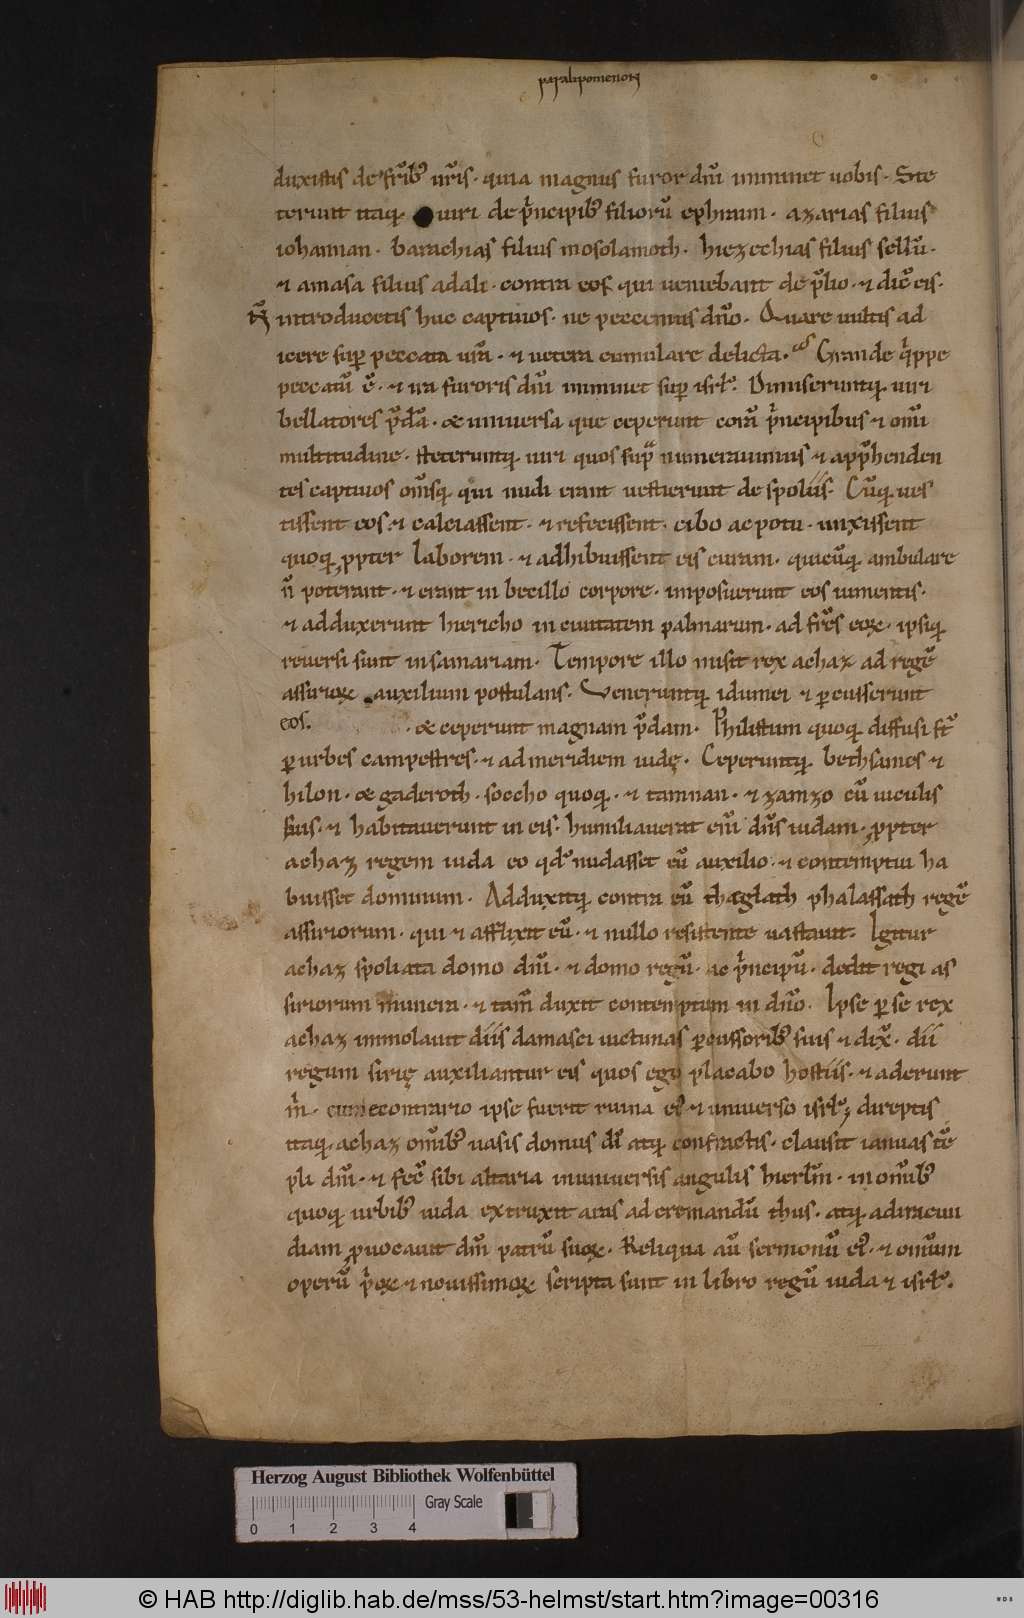 paralipomenon
duxistis de fr̃ib; ur̃is · quia magnus furor dñi imminet uobis · Ste
terunt itaq; uiri de p̾ncipib; filiorũ ephraim · azarias filius
iohannan · barachias filius mosolamoth · hiezechias filius sellũ ·
⁊ amasa filius adali · contra eos qui ueniebant de p̃lio · ⁊ dix̃ eis ·
Ñ introducetis huc captiuos · ne peccemus dño · Quare uultis ad
icere sup peccata ur̃a · ⁊ uetera cumulare delicta · Grande q̾ppe
peccatũ ẽ · ⁊ ira furoris dñi imminet sup isrl̃ · Dimiseruntq; uiri
bellatores p̃dã · & uniuersa que ceperunt corã p̾ncipibus ⁊ om̃i
multitudine · steteruntq; uiri quos sup̃ numerauimus ⁊ app̃henden
tes captiuos om̃sq; qui nudi erant uestierunt de spoliis · Cũq; ues
tissent eos ⁊ calciassent · ⁊ refecissent · cibo ac potu · unxissent
quoq; ꝓpter laborem · ⁊ adhibuissent eis curam · quicũq; ambulare
ñ poterant · ⁊ erant in becillo corpore · imposuerunt eos iumentis ·
⁊ adduxerunt hiericho in ciuitatem palmarum · ad fr̃es eoꝝ · ipsiq;
reuersi sunt in samariam · Tempore illo misit rex achaz ad regẽ
assirioꝝ auxilium postulans · Ueneruntq; idumei ⁊ ꝑcusserunt
eos · & ceperunt magnam p̃dam · Philistiim quoq; diffusi st̃
ꝑ urbes campestres · ⁊ ad meridiem iudę · Ceperuntq; bethsames ⁊
hilon · & gaderoth · soccho quoq; · ⁊ tamnan · ⁊ zamzo cũ uiculis
suis · ⁊ habitauerunt in eis · humiliauerat eni̇̃ dñs iudam · ꝓpter
achaz regem iuda eo qd̃ nudasset eũ auxilio · ⁊ contemptui ha
buisset dominum · Adduxitq; contra eũ thaglath phalassath regẽ
assiriorum · qui ⁊ afflixit eũ · ⁊ nullo resistente uastauit · Igitur
achaz spoliata domo dñi · ⁊ domo regũ · ac p̾ncipũ · dedit regi as
siriorum munera · ⁊ tam̃ duxit contemptum in dño · Ipse ꝑ se rex
achaz immolauit diis damasci uictimas ꝑcussorib; suis ⁊ dix̃ · dii
regum sirię auxiliantur eis quos ego placabo hostiis · ⁊ aderunt
m̾ · cum econtrario ipse fuerit ruina ei; ⁊ uniuerso isrl̃; direptis
itaq; achaz om̃ib; uasis domus dĩ atq; confractis · clausit ianuas tẽ
pli dñi · ⁊ fec̃ sibi altaria in uniuersis angulis hierlm̃ · in om̃ib;
quoq; urbib; iuda extruxit aras ad cremandũ thus · atq; ad iracun
diam ꝓuocauit dñm patrũ suoꝝ · Reliqua aũ sermonũ ei; · ⁊ omium
operũ p̾oꝝ ⁊ nouissimoꝝ scripta sunt in libro regũ iuda ⁊ isrl̃ ·
Herzog August Bibliothek Wolfenbüttel
Gray Scale
0 1 2 3 4
© HAB http://diglib.hab.de/mss/53-helmst/start.htm?image=00316